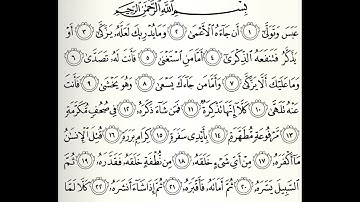 بِسْمِ اللَّهِ الرَّحْمَٰنِ الرَّحِيمِ
عَبَسَ وَتَوَلَّىٰٓ ١ أَن جَآءَهُ الْأَعْمَىٰ ٢ وَمَا يُدْرِيكَ لَعَلَّهُۥ يَزَّكَّىٰٓ ٣ أَوْ
يَذَّكَّرُ فَتَنفَعَهُ الذِّكْرَىٰٓ ٤ أَمَّا مَنِ اسْتَغْنَىٰ ٥ فَأَنتَ لَهُۥ تَصَدَّىٰ ٦
وَمَا عَلَيْكَ أَلَّا يَزَّكَّىٰ ٧ وَأَمَّا مَن جَآءَكَ يَسْعَىٰ ٨ وَهُوَ يَخْشَىٰ ٩ فَأَنتَ
عَنْهُ تَلَهَّىٰ ١٠ كَلَّآ إِنَّهَا تَذْكِرَةٌ ١١ فَمَن شَآءَ ذَكَرَهُۥ ١٢ فِى صُحُفٍ مُّكَرَّمَةٍ
١٣ مَّرْفُوعَةٍ مُّطَهَّرَةٍۭ ١٤ بِأَيْدِى سَفَرَةٍ ١٥ كِرَامٍۭ بَرَرَةٍ ١٦ قُتِلَ الْإِنسَٰنُ
مَآ أَكْفَرَهُۥ ١٧ مِنْ أَىِّ شَىْءٍ خَلَقَهُۥ ١٨ مِن نُّطْفَةٍ خَلَقَهُۥ فَقَدَّرَهُۥ ١٩ ثُمَّ
السَّبِيلَ يَسَّرَهُۥ ٢٠ ثُمَّ أَمَاتَهُۥ فَأَقْبَرَهُۥ ٢١ ثُمَّ إِذَا شَآءَ أَنشَرَهُۥ ٢٢ كَلَّا لَمَّا